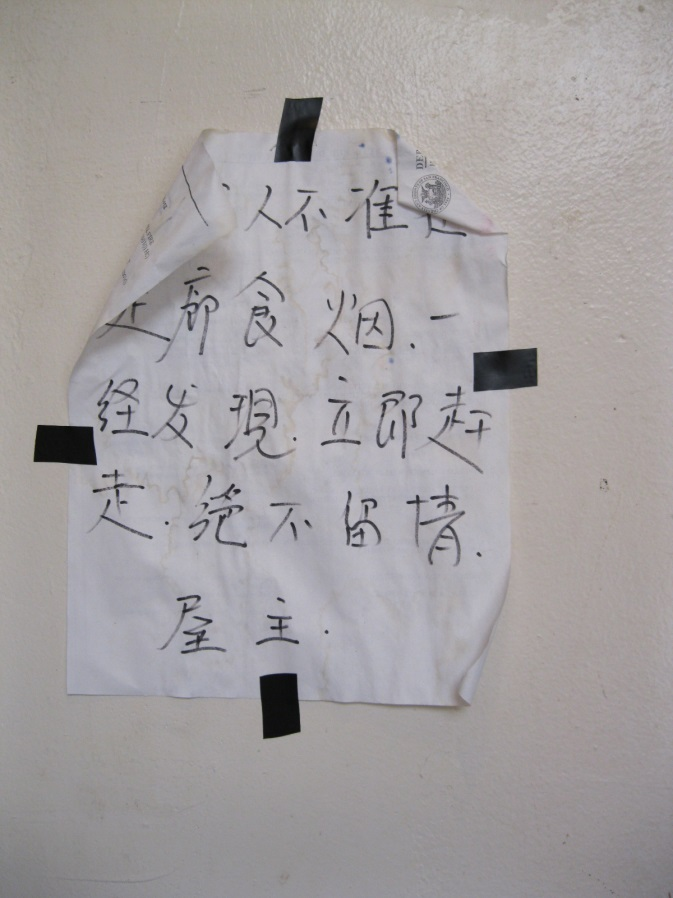 人不准
走廊食烟.一
経发現.立即赶
走.絶不留情.
屋主.